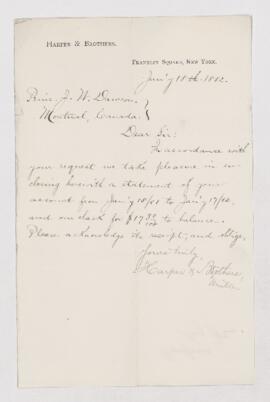 HARPER & BROTHERS.
FRANKLIN SQUARE, NEW YORK.
Jan'y 18th 1882.
Prin. J. W. Dawson,
Montreal, Canada.
Dear Sir:
In accordance with
your request we take pleasure in en-
closing herewith a statement of your
account from Jan'y to Jan'y
and our check for to balance.
Please acknowledge its receipt, and oblige,
Yours truly,
Harper & Brothers,